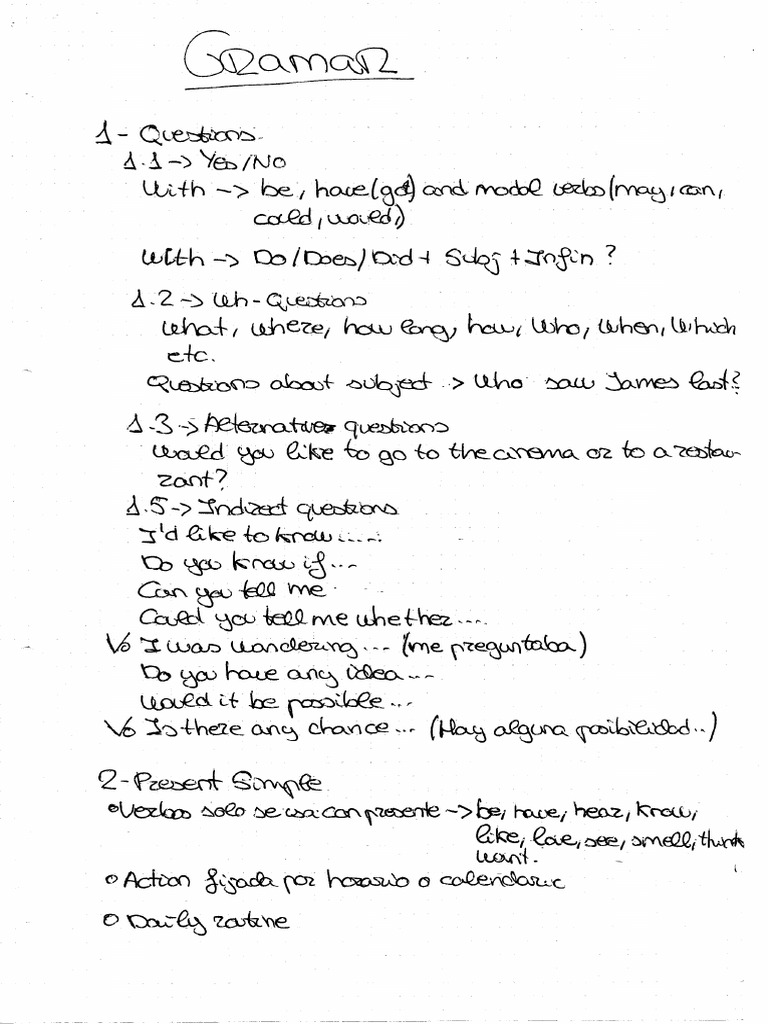 Gramar
1 - Questions
1.1 -> Yes/No
With -> be, have (got) and modal verbs (may, can,
could, would,)
With -> Do/Does/Did + Subj + Infin ?
1.2 -> Wh-Questions
What, where, how long, how, Who, When, Which
etc.
Questions about subject -> Who saw James last?
1.3 -> Alternative questions
Would you like to go to the cinema or to a restau-
rant?
1.5 -> Indirect questions
I'd like to know.....
Do you know if...
Can you tell me.
Could you tell me whether....
Vo I was wondering... (me preguntaba)
Do you have any idea....
Would it be possible...
Vo Is there any chance... (Hay alguna posibilidad..)
2-Present Simple
Verbos solo se usa con presente -> be, have, hear, know,
like, love, see, smell, think
want.
Action fijada por horario o calendario
Daily routine